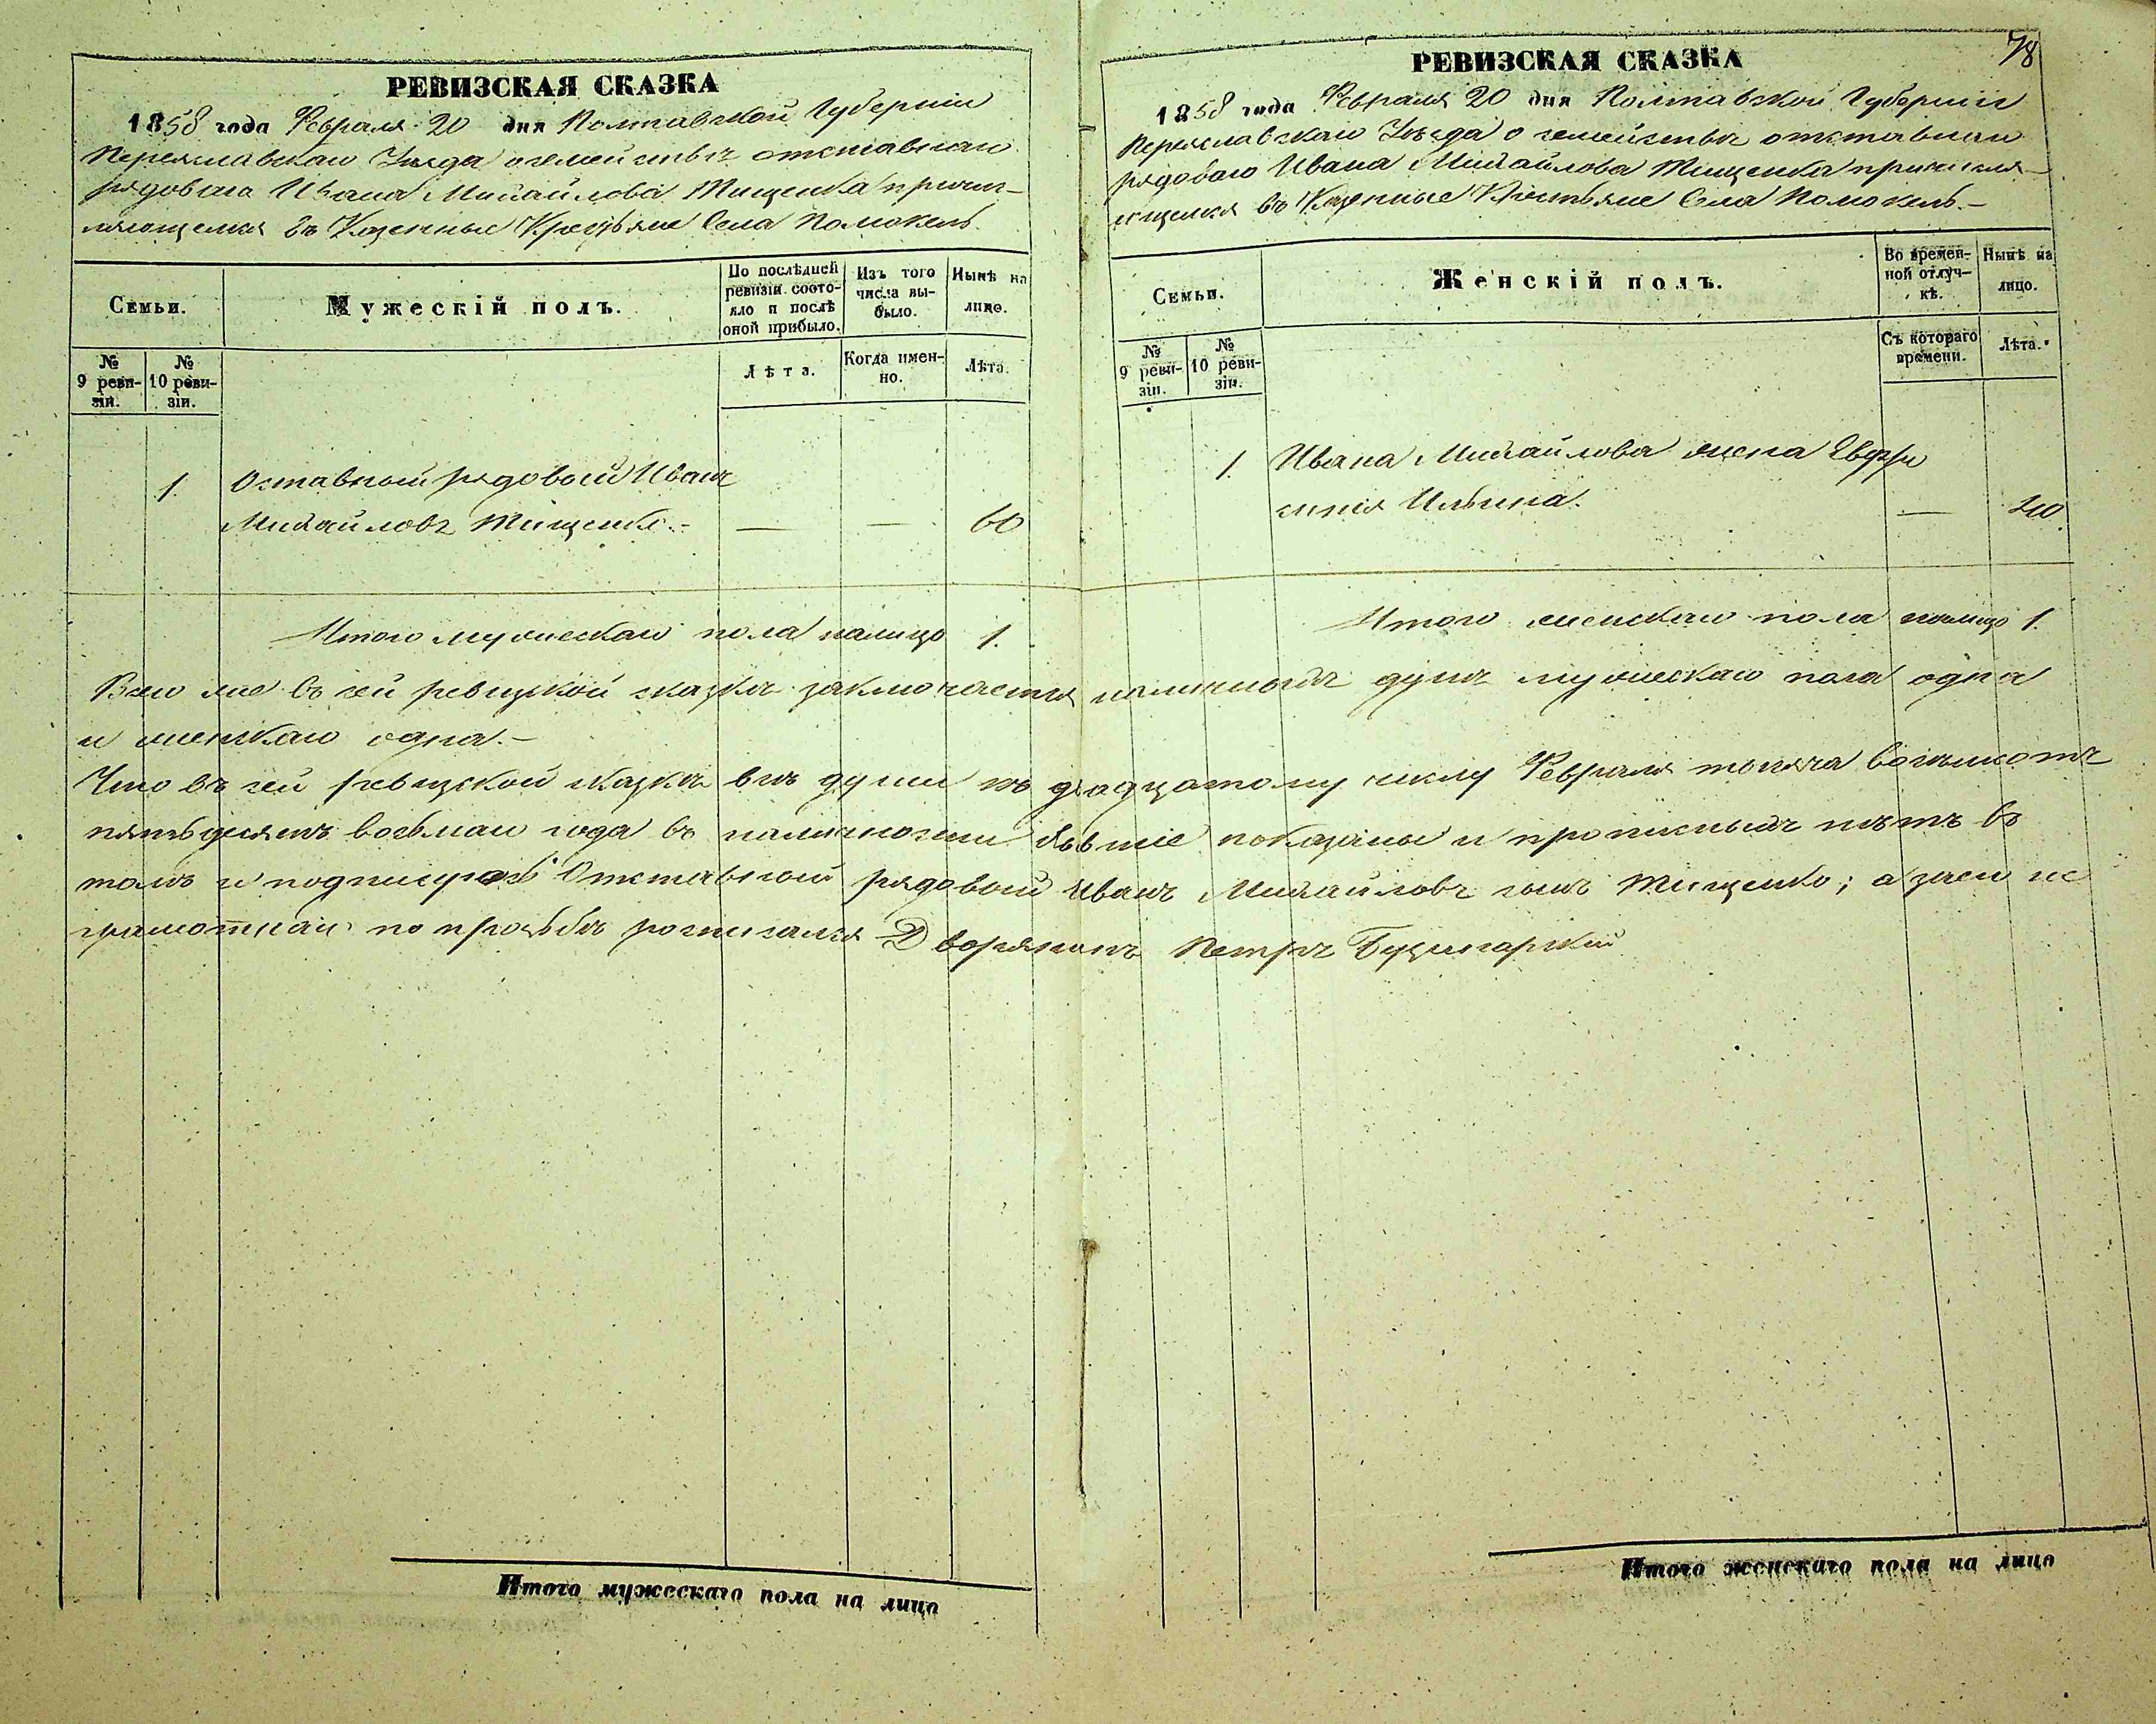 РЕВИЗСКАЯ СКАЗКА
1858 года Февраля 20 дня Полтавской Губерніи
Переяславскаго Уѣзда о семействѣ отставнаго
рядоваго Ивана Михайлова Тищенка причис-
ляющемся въ Казенные Крестьяне Села Помоклъ
Семьи.
Мужескій полъ.
По послѣдней ревизіи состо-
яло и послѣ оной прибыло.
Изъ того числа вы-
было.
Нынѣ на лицо.
№ 9 реви-
зіи.
№ 10 реви-
зіи.
Лѣта.
Когда имен-
но.
Лѣта.
1. Оставной рядовой Иванъ
Михайловъ Тищенко.- — — 60
Итого мужескаго пола налицо 1.
РЕВИЗСКАЯ СКАЗКА
78
1858 года Февраля 20 дня Полтавской Губерніи
Переяславскаго Уѣзда о семействѣ отставнаго
рядоваго Ивана Михайлова Тищенка причисля-
ющемся въ Казенные Крестьяне Села Помоклъ.-
Семьи.
Женскій полъ.
Во времен-
ной отлуч-
кѣ.
Нынѣ на лицо.
№ 9 реви-
зіи.
№ 10 реви-
зіи.
Съ котораго времени.
Лѣта.
1. Ивана Михайлова жена Евфро
синія Ильина. —
Итого женскаго пола налицо 1.
Всего же въ сей ревизской сказкѣ заключается наличныхъ душъ мужескаго пола одна
и женскаго одна.-
Что въ сей ревизской сказкѣ всѣ души къ двадцатому числу Февраля тысяча восемьсотъ
пятьдесятъ восьмаго года въ наличности бывшіе показаны и прописныхъ нѣтъ въ
томъ и подписуюсь Отставной рядовой Иванъ Михайловъ сынъ Тищенко; а за его не
грамотнаго по прозьбѣ росписался Дворянинъ Петръ
Итого мужескаго пола на лицо
Итого женскаго пола на лицо